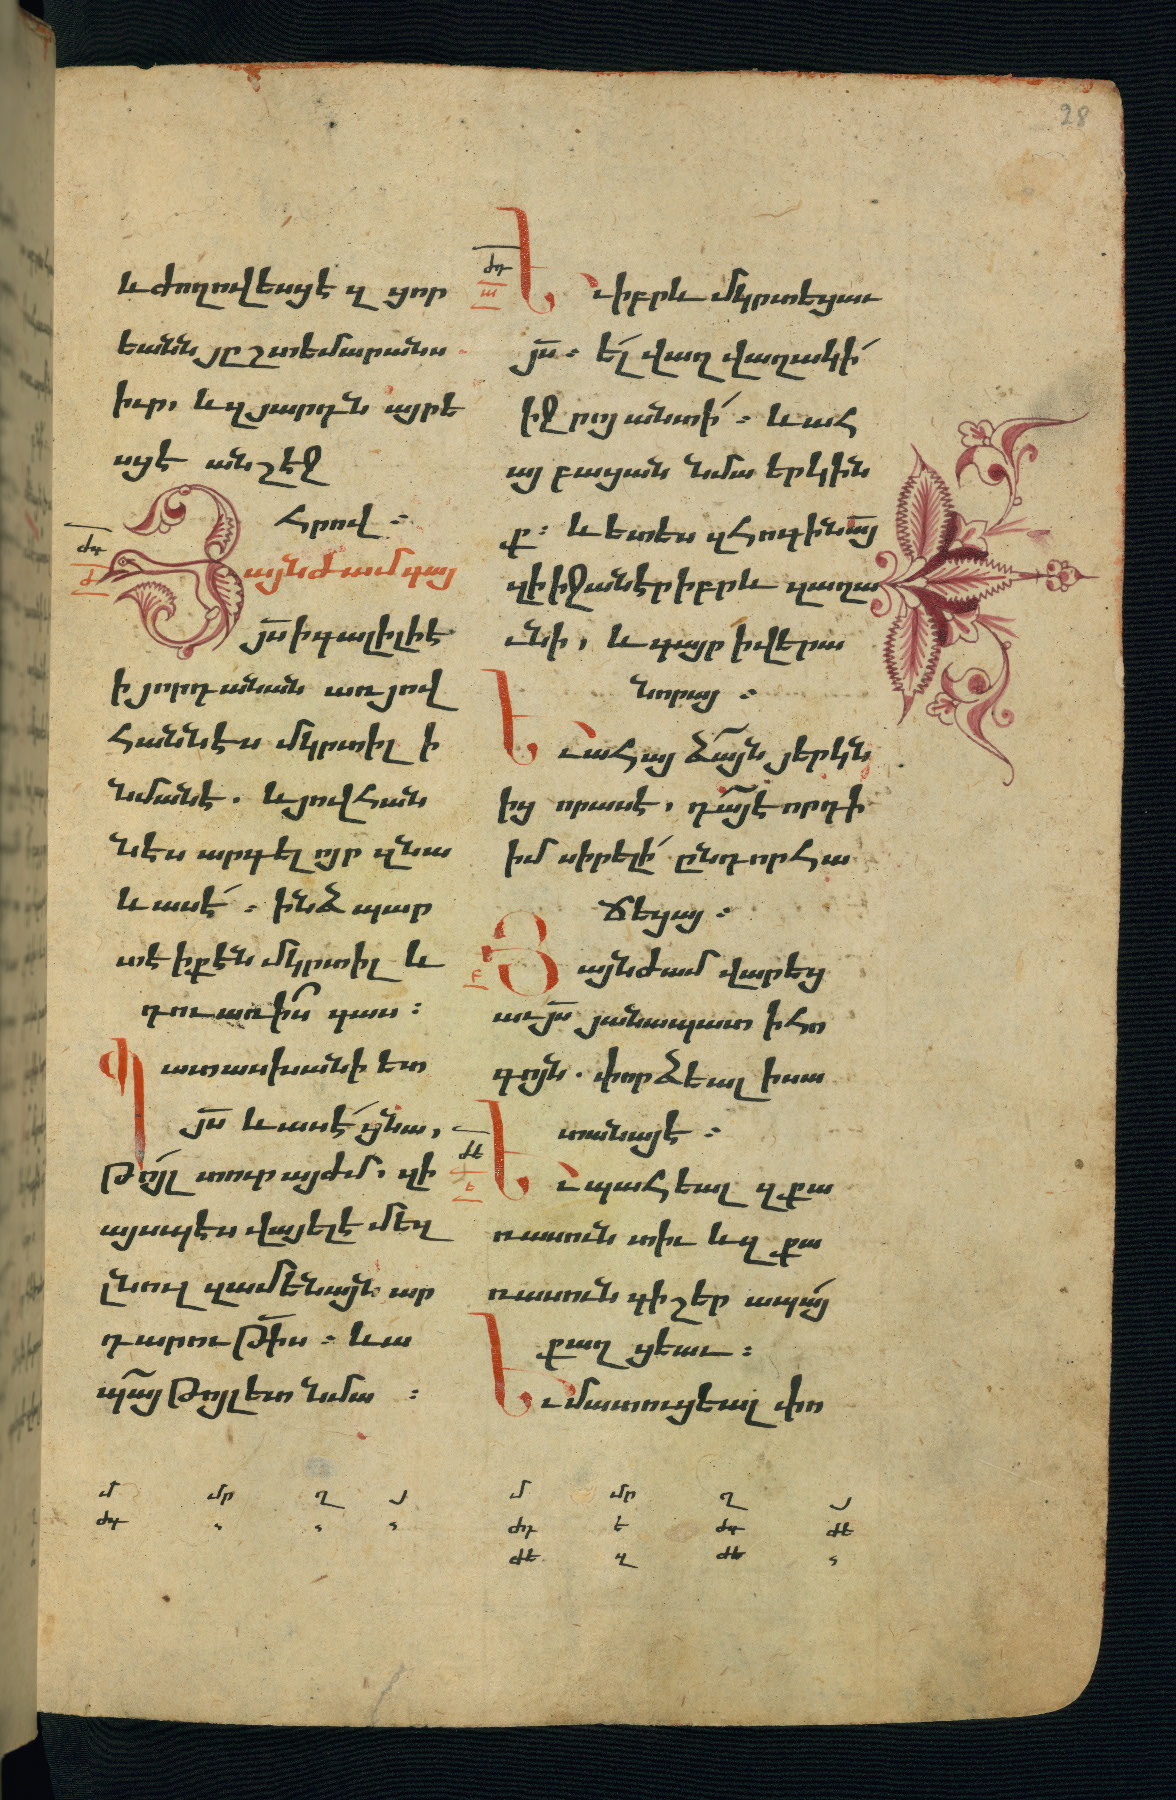 28
և ժողովեսցէ զ ցոր
եանն յը շտեմարանս
իւր, և զյարդն այրե
սցէ անշէջ
հրով ։
Յայնժամ գայ
յս իգալիլիէ
ի յորդանան առ յով
հաննէս մկրտիլ ի
նմանէ. և յովհան
նէս արգել ոյր զնա
և ասէ ։ ինձ պար
տէ իքէն մկրտիլ և
դու առ իս գաս ։
Պատասխանի ետ
յս և ասէ ցնա,
Թոյլ տուր այժմ. զի
այսպէս վայելէ մեզ
լնուլ զամենայն ար
դարութիս ։ և ա
պա Թոյլ ետ նմա ։
ժգ
ժ
ժդ
ա
Եւ իբրև մկրտեցաւ
յս ։ ել վաղվաղակի
ի ջրոյ անտի ։ և ահ
ա բացան նմա երկին
ք ։ և ետես զհոգին այ
զի իջանէր իբրև զաղա
ւնի, և գայր ի վերա
նորայ ։
Եւ ահա ձայն յերկն
ից որ ասէ, դա է որդի
իմ սիրելի ընդ որ հա
ճեցայ ։
Յայնժամ վարեց
աւ յս յանապատ ի հո
գոյն. փորձեալ ի սա
տանայէ ։
Եւ պահեալ զքա
ռասուն տիւ և զքա
ռասուն գիշեր ապա
քաղցեաւ ։
Եւ մատուցեալ փո
բ
ժե
ե
մ մր ղ յ
ժգ
մ մր ղ յ
ժդ ե ժգ ժէ
ժե զ ժե